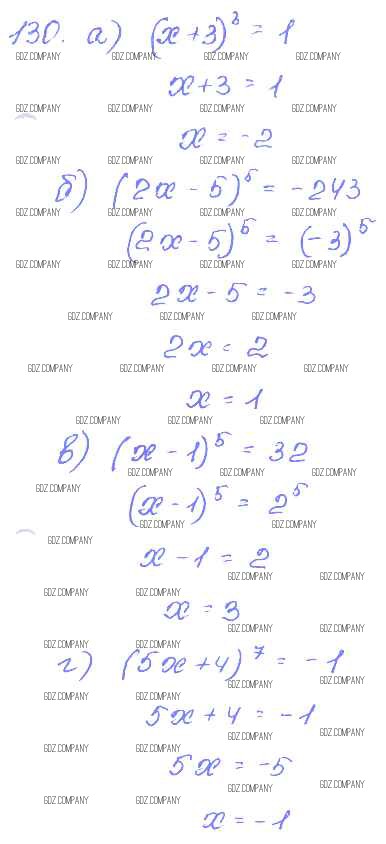 130. а) (x + 3)³ = 1
GDZ.COMPANY GDZ.COMPANY GDZ.COMPANY GDZ.COMPANY
x + 3 = 1
GDZ.COMPANY GDZ.COMPANY GDZ.COMPANY GDZ.COMPANY
x = -2
GDZ.COMPANY GDZ.COMPANY GDZ.COMPANY GDZ.COMPANY
б) (2x - 5)⁵ = -243
GDZ.COMPANY GDZ.COMPANY GDZ.COMPANY GDZ.COMPANY
(2x - 5)⁵ = (-3)⁵
GDZ.COMPANY GDZ.COMPANY GDZ.COMPANY GDZ.COMPANY
2x - 5 = -3
GDZ.COMPANY GDZ.COMPANY GDZ.COMPANY
2x = 2
GDZ.COMPANY GDZ.COMPANY GDZ.COMPANY GDZ.COMPANY
x = 1
GDZ.COMPANY GDZ.COMPANY GDZ.COMPANY
в) (x - 1)⁵ = 32
GDZ.COMPANY GDZ.COMPANY GDZ.COMPANY
GDZ.COMPANY
(x - 1)⁵ = 2⁵
GDZ.COMPANY GDZ.COMPANY
GDZ.COMPANY
x - 1 = 2
GDZ.COMPANY GDZ.COMPANY
GDZ.COMPANY GDZ.COMPANY
x = 3
GDZ.COMPANY GDZ.COMPANY
GDZ.COMPANY GDZ.COMPANY
г) (5x + 4)⁷ = -1
GDZ.COMPANY GDZ.COMPANY
GDZ.COMPANY GDZ.COMPANY
5x + 4 = -1
GDZ.COMPANY GDZ.COMPANY
GDZ.COMPANY GDZ.COMPANY
5x = -5
GDZ.COMPANY GDZ.COMPANY
GDZ.COMPANY GDZ.COMPANY
x = -1